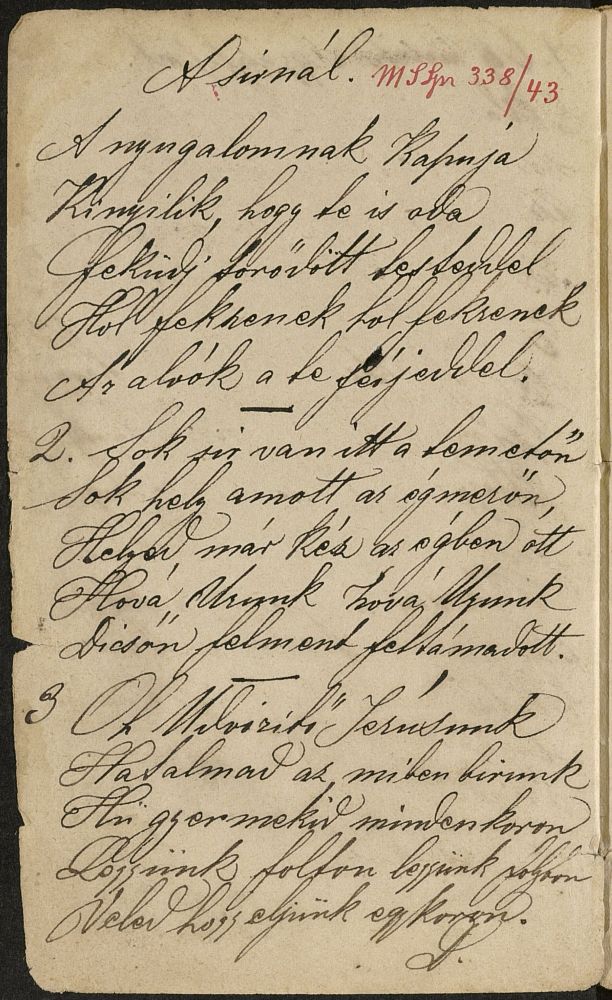 A sirnál. MSSpr 338/43
A nyugalomnak Kapuja
Kinyilik, hogy te is oda
Feküdj törődött testeddel
Hol fekszenek hol fekszenek
Az alvók a te férjeddel.
2. Sok sir van itt a temetőn
Sok hely amott az égmezőn
Helyed már kész az égben ott
Hová, Urunk hová, Urunk
Dicsőn felment feltámadott.
3 Oh Üdvözitő Jézusunk
Hatalmad az, miben birunk
Hű gyermekid mindenkoron
Legyünk folton legyünk folton
Veled hogy eljünk egykoron.